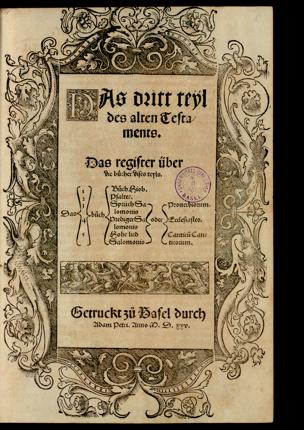 DAs dritt teyl
des alten Testa-
ments.
Das register über
die bücher dises teyls.
Das 1 2 3 4 5 büch
Büch Hiob.
Psalter.
Sprüch Sa-
lomonis
Prediger Sa-
lomonis
Hohe lied
Salomonis
oder
Prouerbiorum.
Ecclesiastes.
Canticū Can-
ticorum.
Getruckt zů Basel durch
Adam Petri. Anno M. D. xxv.